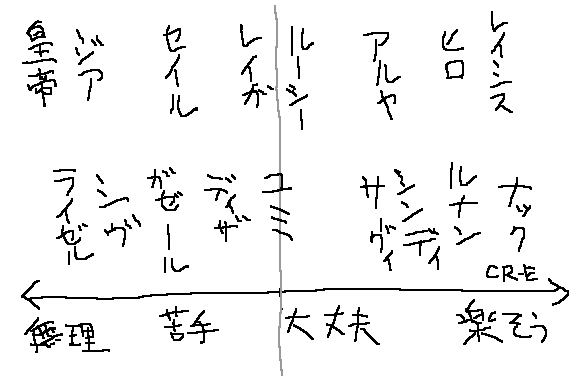 皇帝
ジア
セイル
レイガ
ルーシー
アルヤ
ヒロ
レイシス
ライゼル
シヴ
ガゼール
ディザ
ユミ
サヴィ
シンディ
ルナン
ナック
CR-E
無理 苦手 大丈夫 楽そう